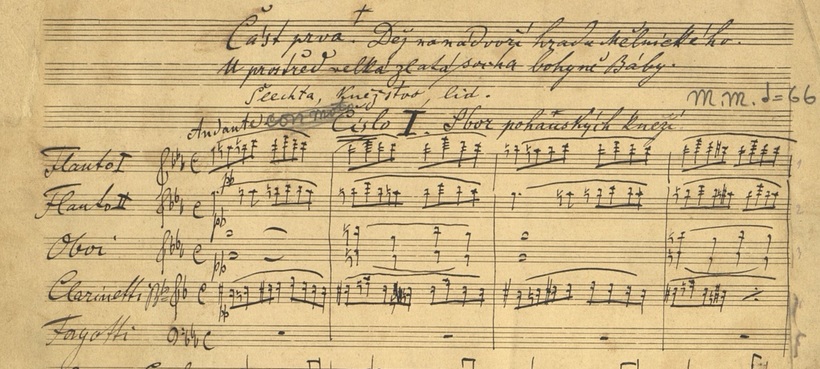 Část prva. Děj na nádvoří hradu Mělnického.
U prostřed velká zlatá socha bohyně Báby.
Šlechta, Kněžstvo, lid.
M.M. ♩=66
Andante con moto Číslo I. Sbor pohanských kněží
Flauto I
pp
Flauto II
pp
Oboi
pp
Clarinetti B
pp
Fagotti